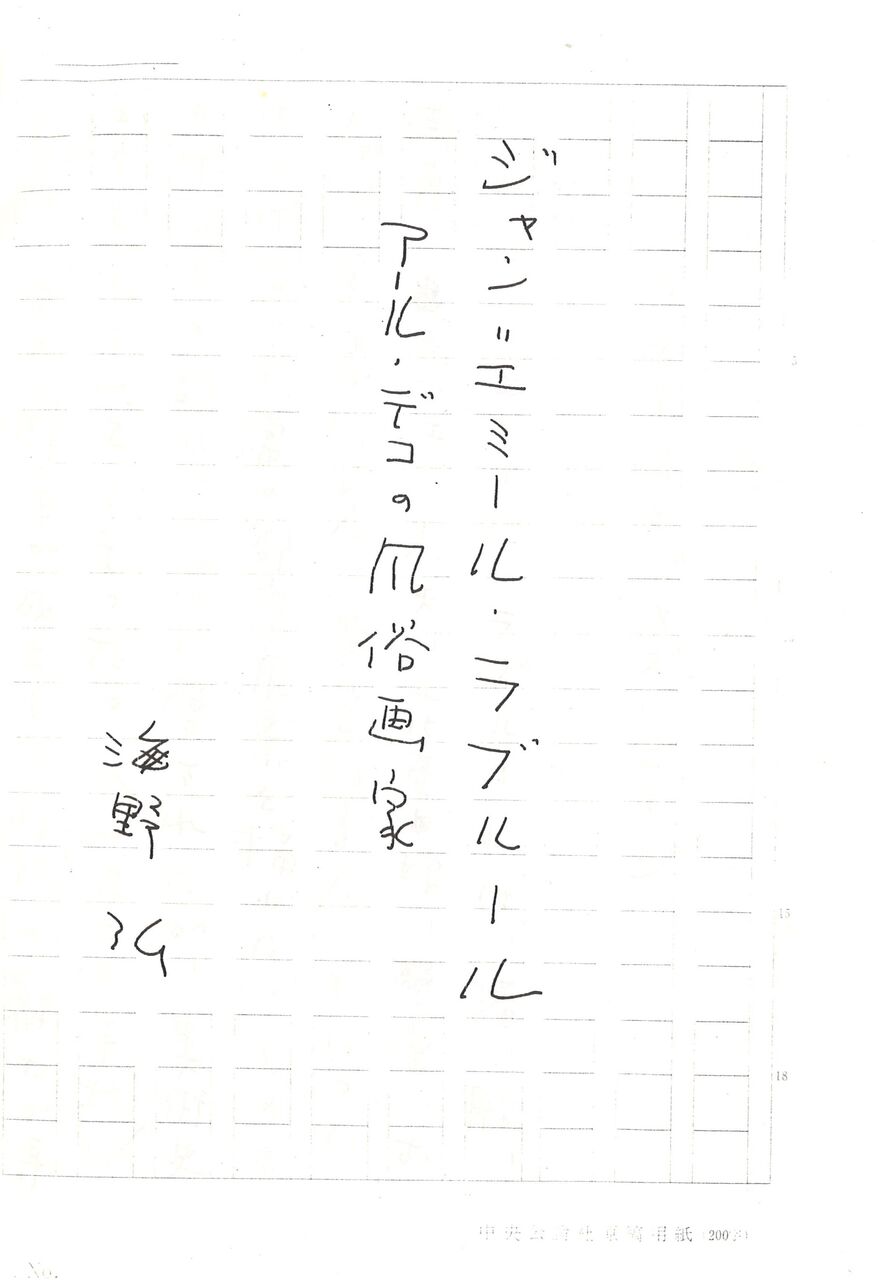 ジャン＝エミール・ラブルール
アール・デコの風俗画家
海野 弘
5
15
18
中央公論社原稿用紙 (200字)
No.